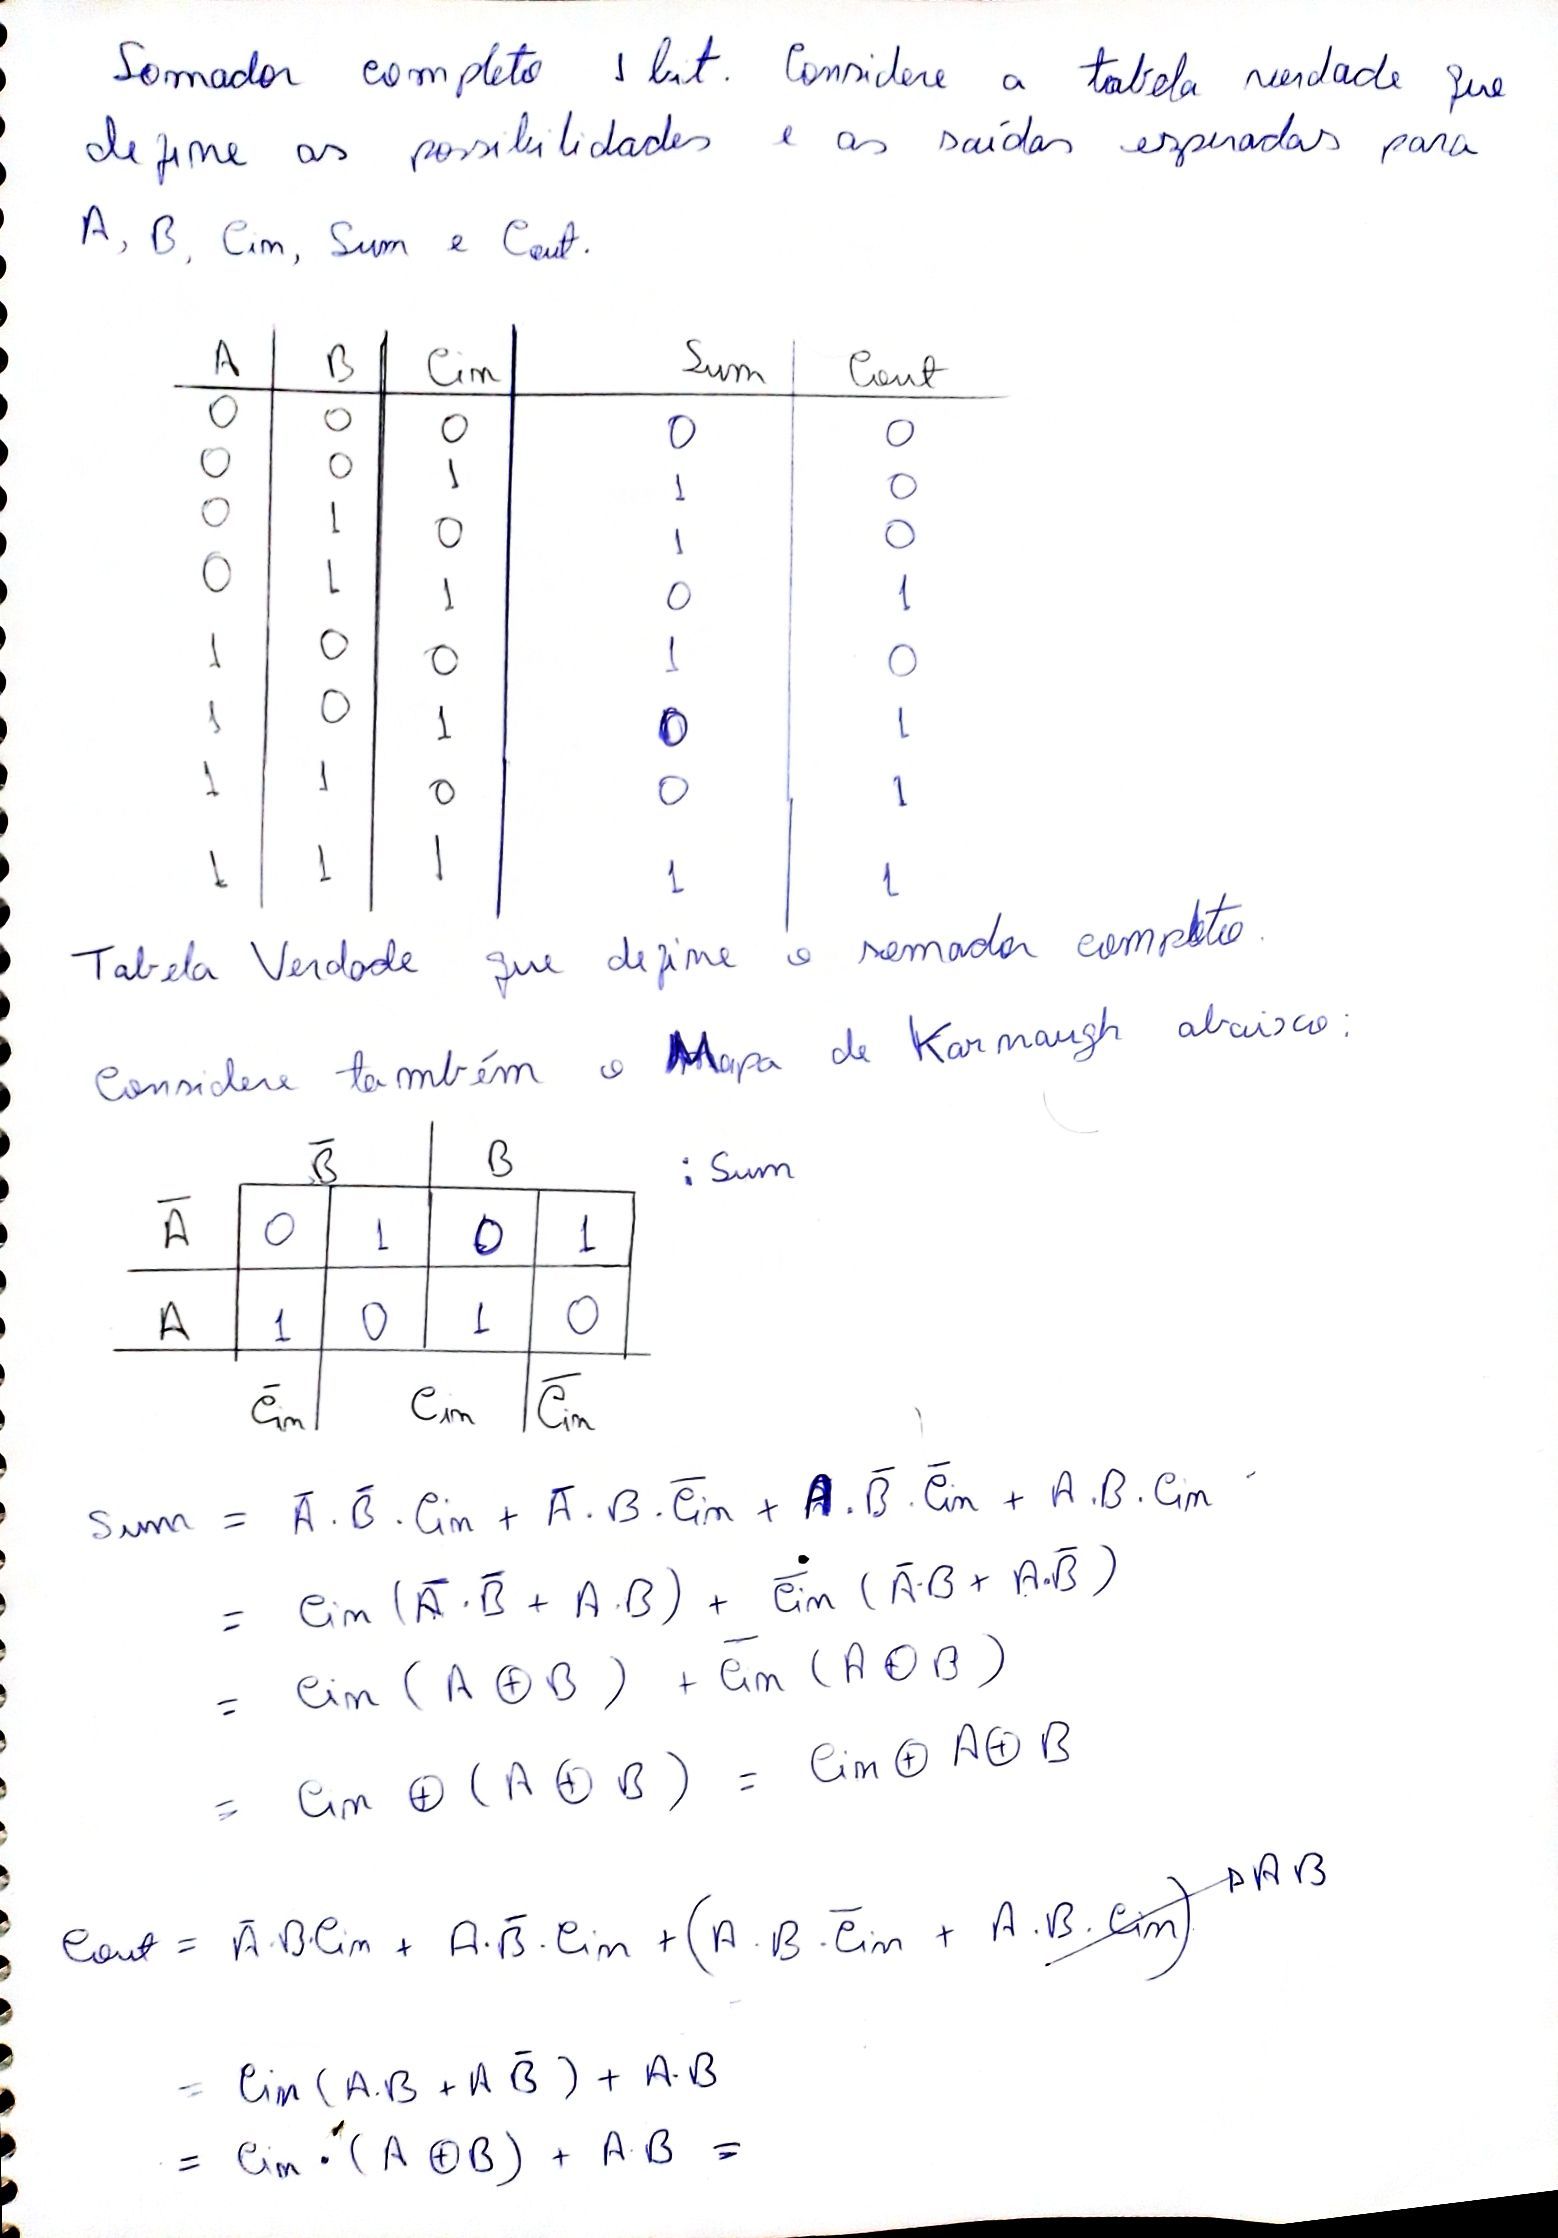 Somador completo 1 bit. Considere a tabela verdade que
define as possibilidades e as saídas esperadas para
A, B, Cin, Sum e Cout.
A | B | Cin | Sum | Cout
0 | 0 | 0 | 0 | 0
0 | 0 | 1 | 1 | 0
0 | 1 | 0 | 1 | 0
0 | 1 | 1 | 0 | 1
1 | 0 | 0 | 1 | 0
1 | 0 | 1 | 0 | 1
1 | 1 | 0 | 0 | 1
1 | 1 | 1 | 1 | 1
Tabela Verdade que define o somador completo.
Considere também o Mapa de Karnaugh abaixo:
B̅ | B : Sum
A̅ 0 1 0 1
A 1 0 1 0
C̅in | Cin | C̅in
Sum = A̅.B̅.Cin + A̅.B.C̅in + A.B̅.C̅in + A.B.Cin
= Cin (A̅.B̅ + A.B) + C̅in (A̅.B + A.B̅)
= Cin (A ⊕ B) + C̅in (A ʘ B)
= Cin ⊕ (A ⊕ B) = Cin ⊕ A ⊕ B
Cout = A̅.B.Cin + A.B̅.Cin + (A.B.C̅in + A.B.Cin) → AB
= Cin (A.B + A B̅) + A.B
= Cin . (A ⊕ B) + A.B =